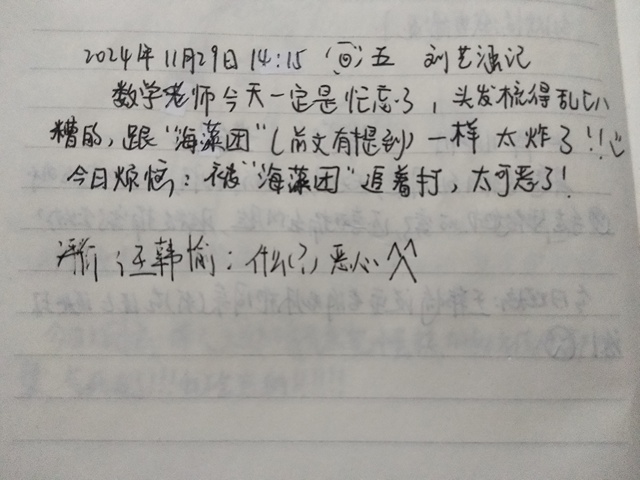 2024年11月29日 14:15 (回)五 刘艺涵记
数学老师今天一定是忙忘了，头发梳得乱七八
糟的，跟“海藻团”（前文有提到）一样 太炸了!!
今日烦恼：被“海藻团”追着打，太可恶了!
评价：王韩愉：什么(?) 恶心^^